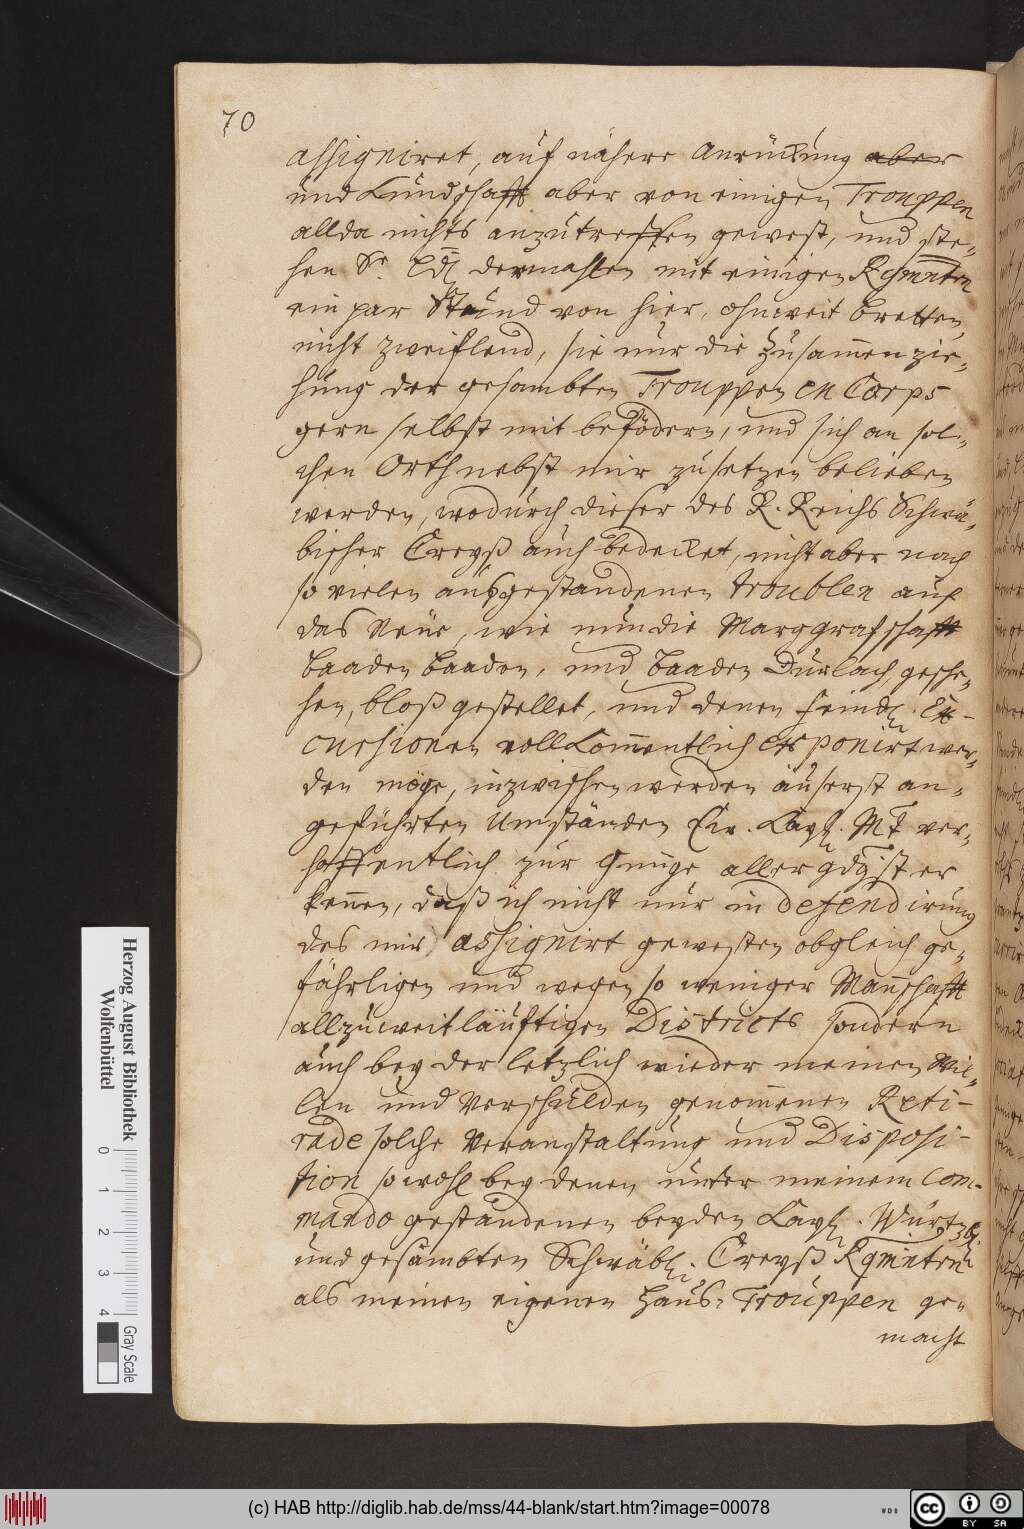 70
assigniret, auf nähere Anrückung aber
und Kundschafft aber von einigen Trouppen
allda nichts anzutreffen gewest, und ste-
hen Sr. Ldl dermahlen mit einigen Rgmnten
ein par Stund von hier, ohnweit Bretten,
nicht zweiflend, sie nur die Zusam̄en zie-
hung der gesambten Trouppen en Corps
gern selbst mit befödern, und sich an sol-
chen Orth nebst mir zusetzen belieben
werden, wodurch dieser des R. Reichs Schwä-
bischer Creyß auch bedecket, nicht aber nach
so vielen ausgestandenen troublen auf
das Neue, wie nun die Marggrafschafft
Baaden Baaden, und Baaden Durlach, gesche-
hen, bloß gestellet, und denen feindl. Ex-
cursionen vollkom̄entlich exponirt wer-
den möge, inzwischen werden äuserst an-
geführten Umständen Ew. Kayl. Mt ver-
hoffentlich zur Gnuge allergdgst er
kennen, daß ich nicht nur in defendirung
des mir assignirt gewesten obgleich ge-
fährligen und wegen so weniger Man̄schafft
allzuweitläuftigen Districts sondern
auch bey der letzlich wieder meinen Wil-
len und Verschulden genom̄enen Reti-
rade solche Veranstaltung und Disposi-
tion so wohl bey denen unter meinem Com-
mando gestandenen beyden Kayl. Würtzbl.
und gesambten Schwäbl. Creyß Rgmnten
als meinen eigenen Haus-Trouppen ge-
macht
Herzog August Bibliothek
Wolfenbüttel
0 1 2 3 4
Gray Scale
(c) HAB http://diglib.hab.de/mss/44-blank/start.htm?image=00078
WDB
cc BY SA